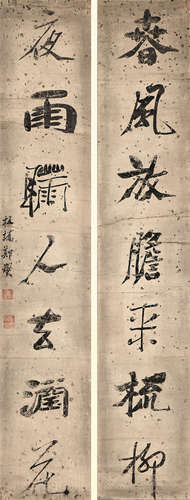 春風放膽来梳柳
夜雨瞞人去潤花
板橋鄭燮